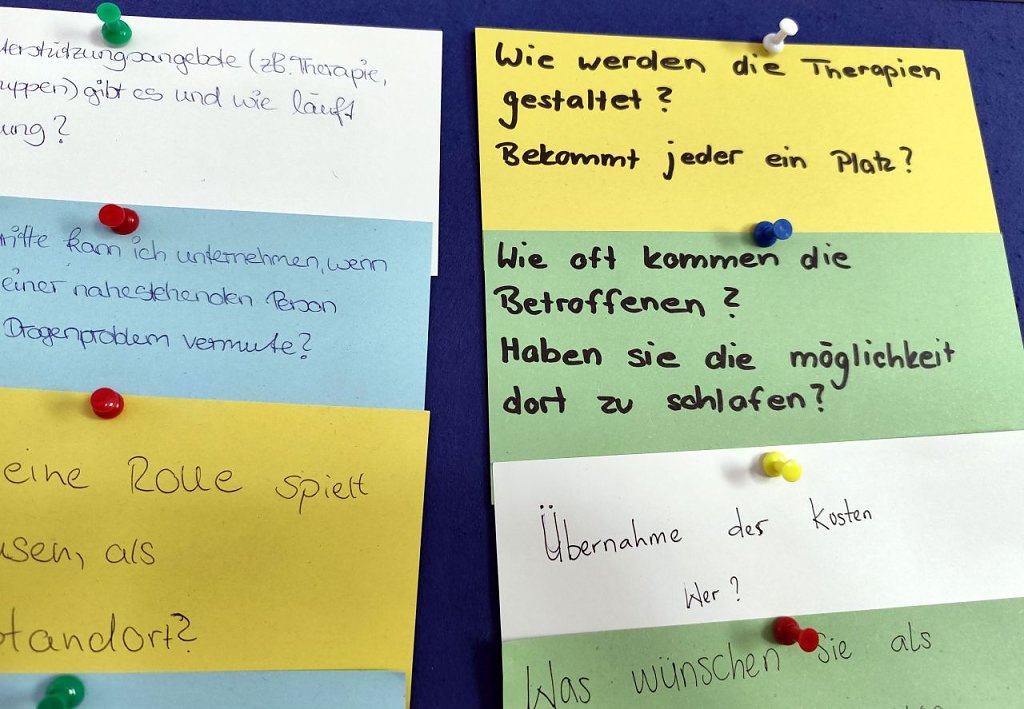 (zB. Therapie,
gibt es und wie läuft
kann ich unternehmen, wenn
einer nahestehenden Person
Drogenproblem vermute?
eine Rolle spielt
als
Wie werden die Therapien
gestaltet?
Bekommt jeder ein Platz?
Wie oft kommen die
Betroffenen?
Haben sie die möglichkeit
dort zu schlafen?
Übernahme der Kosten
Wer?
Was wünschen Sie als